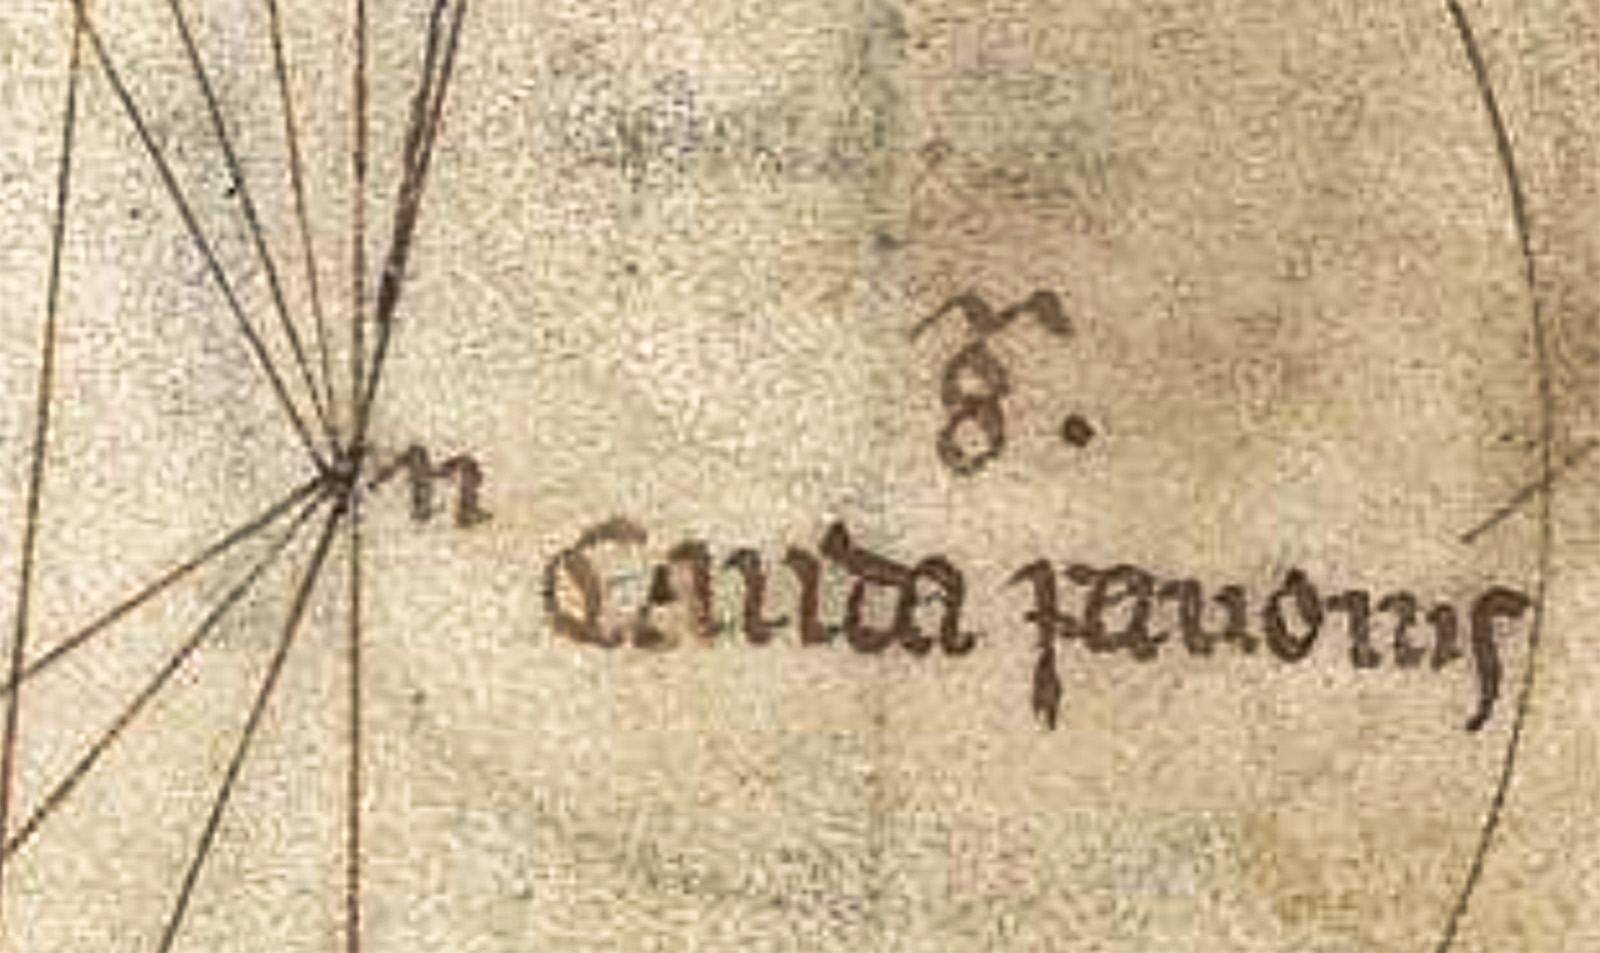 8.
n
Cauda pauonis